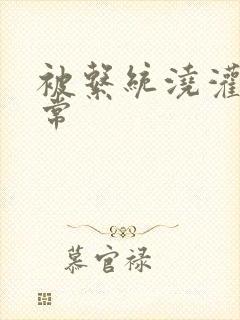 被繫統澆灌
常
慕官禄